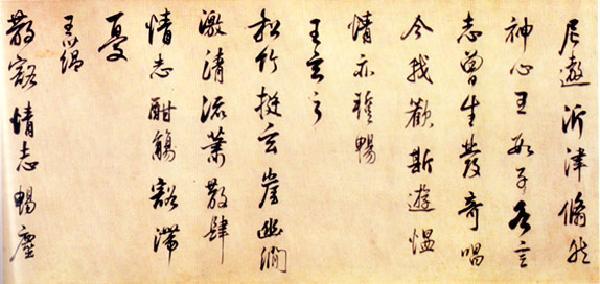 尼遨沂津翛然
神心王數子各言
志曾生發奇唱
今我歡斯遊慍
情亦暫暢
王玄之
松竹挺玄崖幽澗
激清流蕭散肆
情志酣觴豁滯
憂
王蘊
散豁情志暢塵